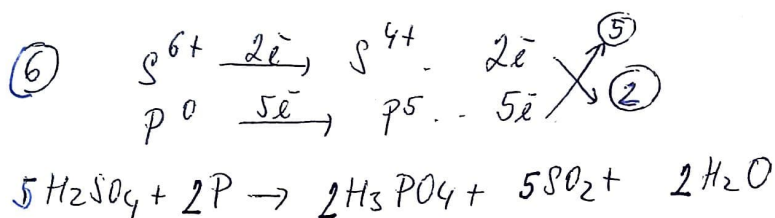 6 S⁶⁺ 2ē→ S⁴⁺. 2ē 5
P⁰ 5ē→ P⁵.. 5ē 2
5H₂SO₄ + 2P → 2H₃PO₄ + 5SO₂ + 2H₂O